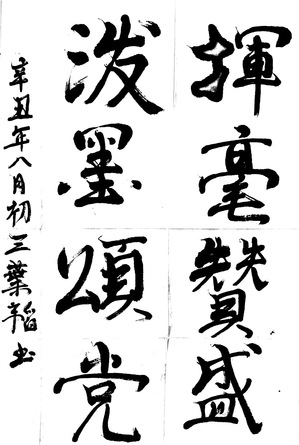 揮毫贊盛
泼墨頌党
辛丑年八月初三葉韜书